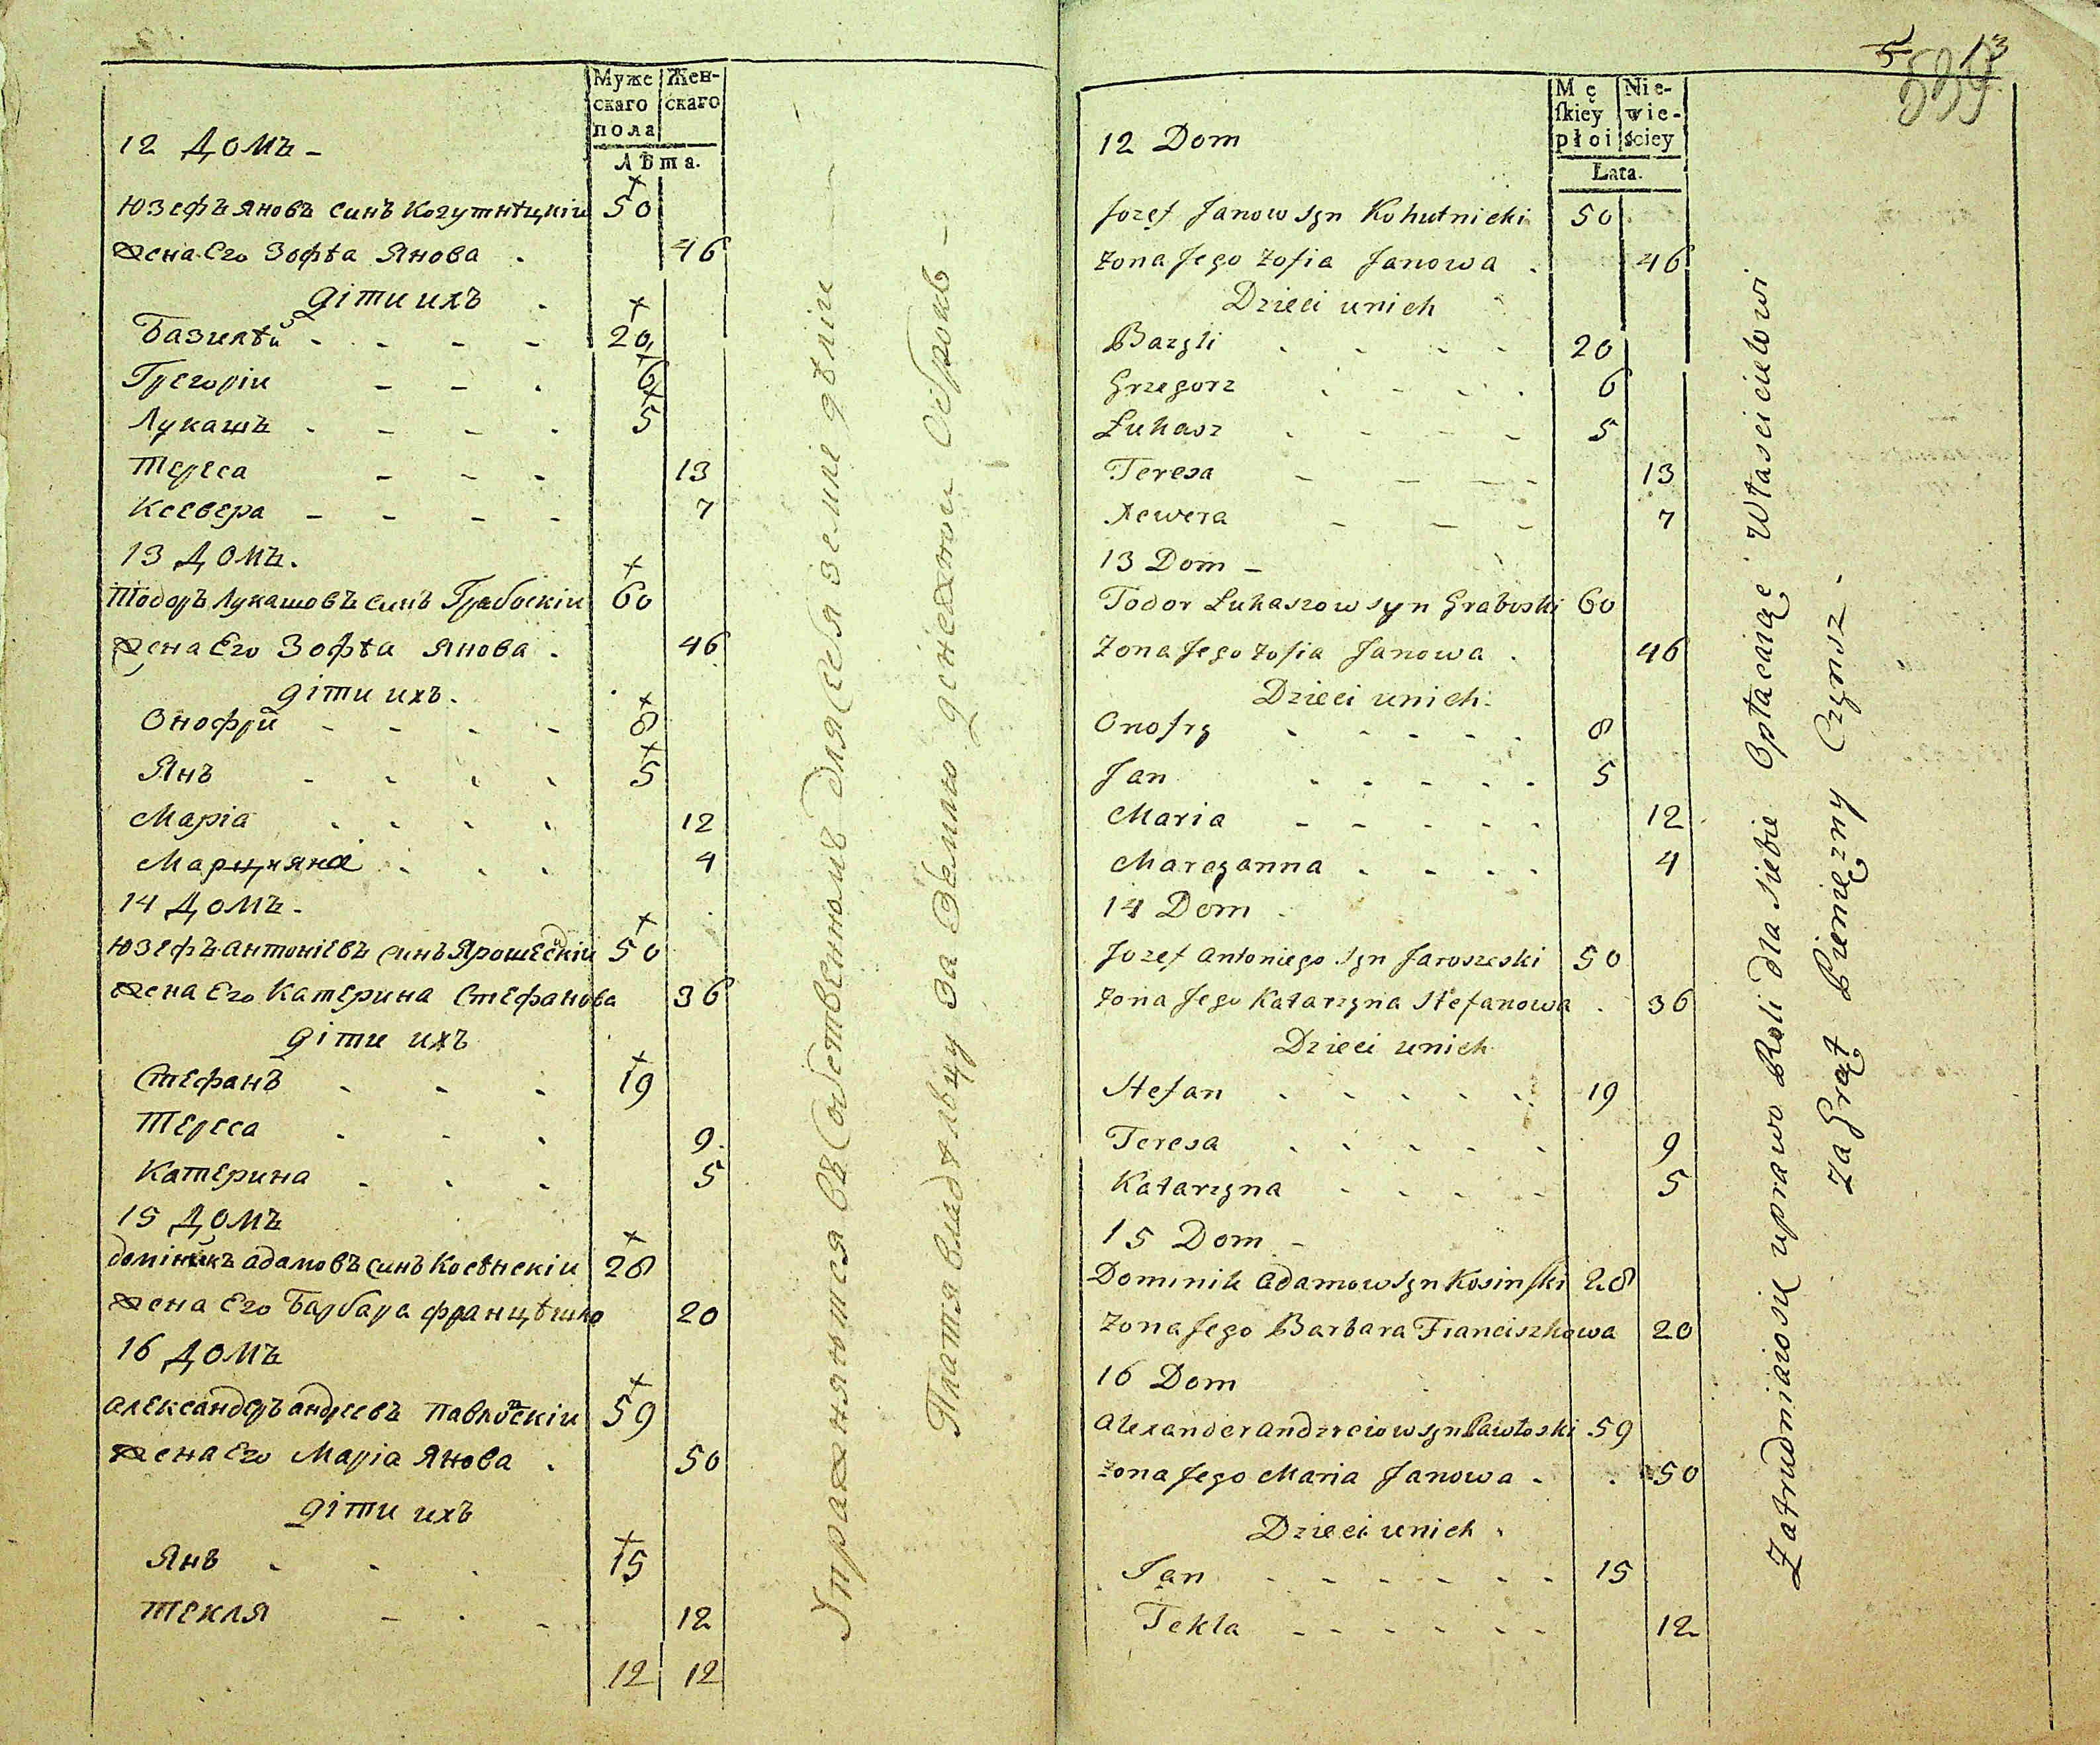 Муже
скаго
пола
Жен-
скаго
Лѣта.
12 Домъ -
Юзефъ Яновъ Синъ Когутнѣцкіи 50
жена Его Зофѣа Янова . 46
діти ихъ .
Базилѣй - - - - 20
Грегоріи - - . 6
Лукашъ . - - . 5
Тереса - - - 13
Ксевера - - - - 7
13 Домъ.
Тодоръ Лукашовъ Синъ Грабоскіи 60
жена Его Зофѣа Янова . 46
діти ихъ.
Онофри - - - - 8
Янъ - - - - 5
Маріа . . . . 12
Марцияна . . . 4
14 Домъ.
Юзефъ Антоніевъ Синъ Ярошескіи 50
жена Его Катерина Стефанова 36
діти ихъ
Стефанъ . . . 19
Тереса . . . 9.
Катерина . . . 5
15 Домъ
Домінікъ Адамовъ Синъ Косѣнскіи 28
жена Его Барбара Францѣшко 20
16 Домъ
Александръ Андреевъ Павлоскіи 59
жена Его Маріа Янова . 50
діти ихъ
Янъ . . . 15
Текля - . - 12
12 12
Упражняются въ Собственномъ для Себя землѣ дѣліи —
Платя владѣлвцу За Землю денежнои Оброкъ —
5 13
Mę
ſkiey
płoi
Nie-
wie-
ściey
Łata.
12 Dom
Jozef Janow Syn Kohutnicki 50
Zona Jego Zofia Janowa . 46
Dzieci unich
Bazyli . . . . 20
Grzegorz . . . . 6
Łukasz . . . - 5
Teresa - - - - 13
Xewera - - - 7
13 Dom -
Todor Łukaszow syn Graboski 60
Zona Jego Zofia Janowa . 46
Dzieci unich.
Onofry . . . . . 8
Jan . . . . . 5
Maria - - - - - 12
Marcyanna . . . . 4
14 Dom
Jozef Antoniego Syn Jaroszeski 50
Zona Jego Katarzyna Stefanowa . 36
Dzieci unich
Stefan . . . . . 19
Teresa . . . . . 9
Katarzyna . . . . 5
15 Dom -
Dominik Adamow Syn Kosinſki 28
Zona Jego Barbara Franciszkowa 20
16 Dom
Alexander Andrzeiow Syn Pawłoski 59
Zona Jego Maria Janowa - . 50
Dzieci unich .
Jan - - - - - - 15
Tekla - - - - - - 12
Zatrudniaiosię uprawo Roli dla siebie Opłacaiąc Właścicielowi
Za Grąt Pienięzny Czynsz -